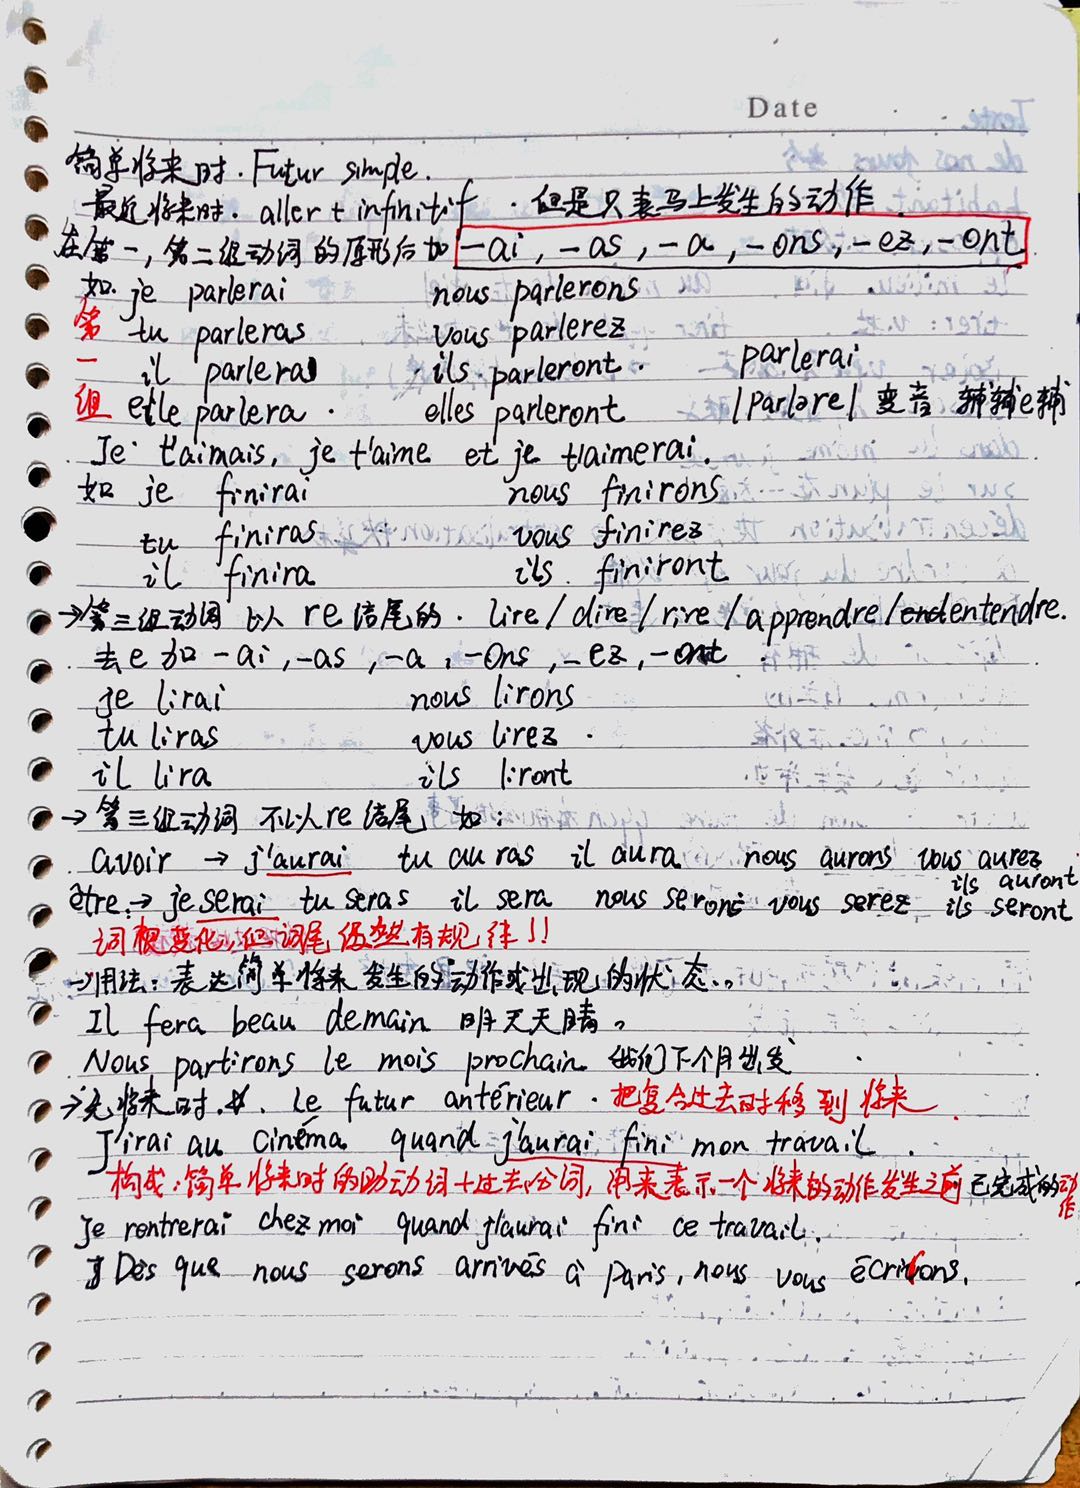 Date
简单将来时. Futur simple.
最近将来时. aller + infinitif . 但是只表马上发生的动作.
在第一, 第二组动词的原形后加 -ai, -as, -a, -ons, -ez, -ont
如. je parlerai nous parlerons
第一组
tu parleras vous parlerez
il parlera ils parleront. parlerai
elle parlera. elles parleront /parlǝre/ 变音 辅辅e辅
Je t'aimais, je t'aime et je t'aimerai.
如 je finirai nous finirons
tu finiras vous finirez
il finira ils finiront
→第三组动词 以re结尾的. lire/dire/rire/apprendre/entendre.
去e加 -ai, -as, -a, -ons, -ez, -ont
je lirai nous lirons
tu liras vous lirez.
il lira ils liront
→第三组动词 不以re结尾 如:
avoir → j'aurai tu auras il aura nous aurons vous aurez
ils auront
être:→ je serai tu seras il sera nous serons vous serez ils seront
词根变化, 但词尾仍然有规律!!
→用法: 表达简单将来发生的动作或出现的状态..。
Il fera beau demain 明天天晴。
Nous partirons le mois prochain. 我们下个月出发
→先将来时. Le futur antérieur. 把复合过去时移到将来
J'irai au cinéma quand j'aurai fini mon travail.
构成: 简单将来时的助动词+过去分词, 用来表示一个将来的动作发生之前已完成的动作
je rentrerai chez moi quand j'aurai fini ce travail.
Dès que nous serons arrivés à Paris, nous vous écrirons.